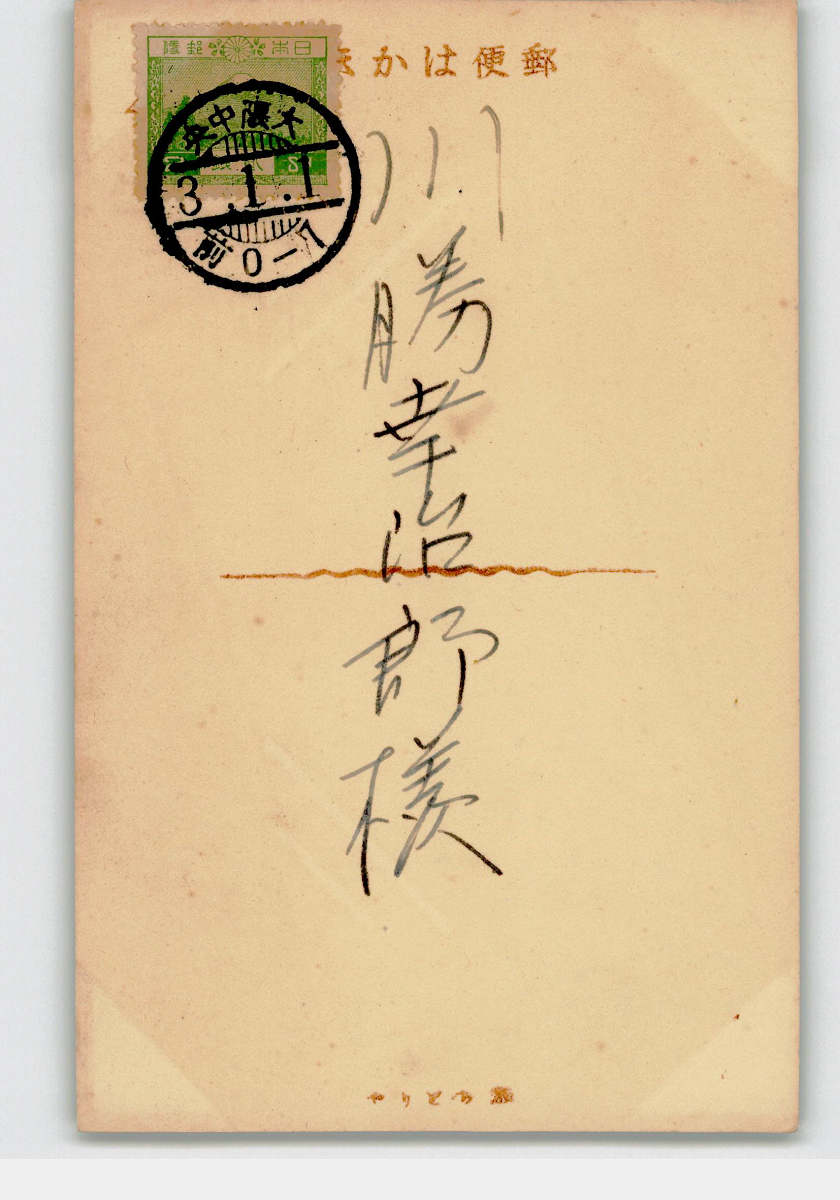 郵便はか
日本郵便
大阪中央
3.1.1
前0-7
川勝幸治郎様